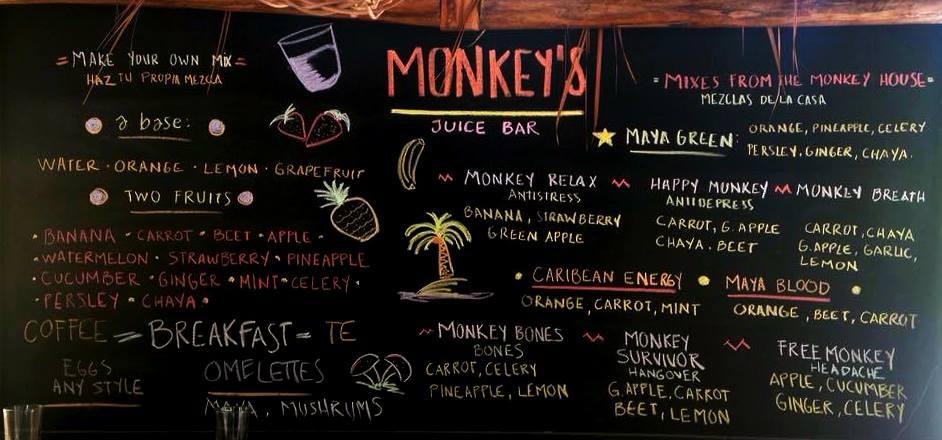 MONKEY'S
JUICE BAR
= MAKE YOUR OWN MIX =
HAZ TU PROPIA MEZCLA
a base:
WATER · ORANGE · LEMON · GRAPEFRUIT
TWO FRUITS
· BANANA · CARROT · BEET · APPLE ·
· WATERMELON · STRAWBERRY · PINEAPPLE
· CUCUMBER · GINGER · MINT · CELERY ·
· PERSLEY · CHAYA ·
COFFEE = BREAKFAST = TE
EGGS
ANY STYLE
OMELETTES
MAYA, MUSHRUMS
= MIXES FROM THE MONKEY HOUSE =
MEZCLAS DE LA CASA
MAYA GREEN:
ORANGE, PINEAPPLE, CELERY
PERSLEY, GINGER, CHAYA.
MONKEY RELAX
ANTISTRESS
BANANA, STRAWBERRY
GREEN APPLE
HAPPY MUNKEY
ANTIDEPRESS
CARROT, G. APPLE
CHAYA. BEET
MONKEY BREATH
CARROT, CHAYA
G. APPLE, GARLIC,
LEMON
CARIBEAN ENERGY
ORANGE, CARROT, MINT
MAYA BLOOD
ORANGE, BEET, CARROT
MONKEY BONES
BONES
CARROT, CELERY
PINEAPPLE, LEMON
MONKEY
SURVIVOR
HANGOVER
G. APPLE, CARROT
BEET, LEMON
FREE MONKEY
HEADACHE
APPLE, CUCUMBER
GINGER, CELERY